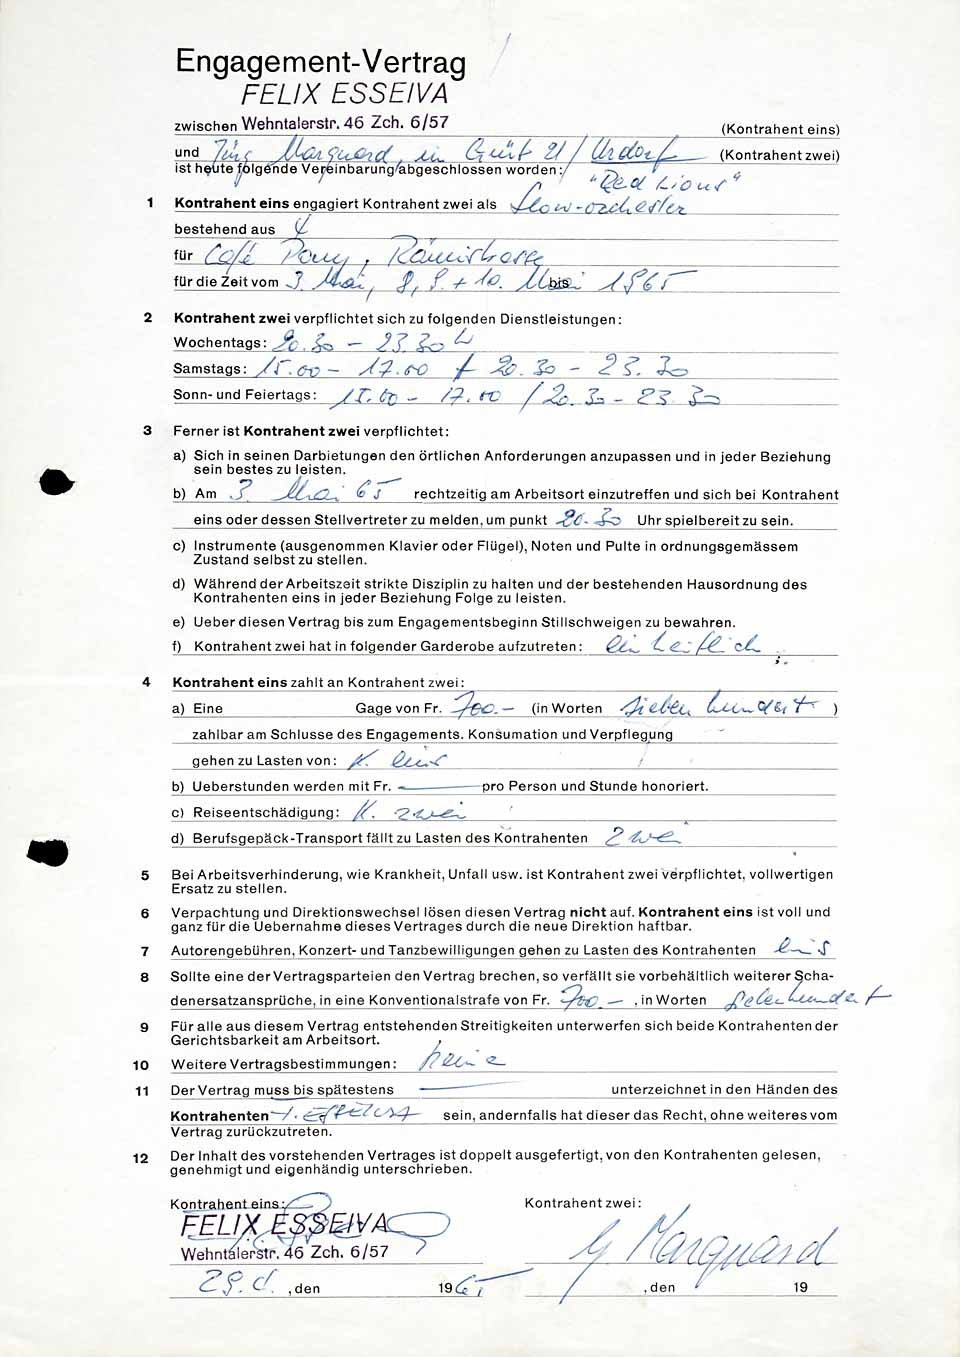 Engagement-Vertrag
FELIX ESSEIVA
zwischen Wehntalerstr. 46 Zch. 6/57 (Kontrahent eins)
und Jürg Marquard, in Gürt 21/Urdorf (Kontrahent zwei)
ist heute folgende Vereinbarung abgeschlossen worden: "Red Lions"
1 Kontrahent eins engagiert Kontrahent zwei als Show-orchester
bestehend aus 4
für Café Pony, Rämistrasse
für die Zeit vom 3. Mai, 8, 9. + 10. Mai bis 1965
2 Kontrahent zwei verpflichtet sich zu folgenden Dienstleistungen:
Wochentags: 20.30 – 23.30 h
Samstags: 15.00 – 17.00 + 20.30 – 23.30
Sonn- und Feiertags: 15.00 – 17.00 / 20.30 – 23.30
3 Ferner ist Kontrahent zwei verpflichtet:
a) Sich in seinen Darbietungen den örtlichen Anforderungen anzupassen und in jeder Beziehung
sein bestes zu leisten.
b) Am 3. Mai 65 rechtzeitig am Arbeitsort einzutreffen und sich bei Kontrahent
eins oder dessen Stellvertreter zu melden, um punkt 20.30 Uhr spielbereit zu sein.
c) Instrumente (ausgenommen Klavier oder Flügel), Noten und Pulte in ordnungsgemässem
Zustand selbst zu stellen.
d) Während der Arbeitszeit strikte Disziplin zu halten und der bestehenden Hausordnung des
Kontrahenten eins in jeder Beziehung Folge zu leisten.
e) Ueber diesen Vertrag bis zum Engagementsbeginn Stillschweigen zu bewahren.
f) Kontrahent zwei hat in folgender Garderobe aufzutreten: einheitlich
4 Kontrahent eins zahlt an Kontrahent zwei:
a) Eine Gage von Fr. 700.– (in Worten siebenhundert )
zahlbar am Schlusse des Engagements. Konsumation und Verpflegung
gehen zu Lasten von: K. eins
b) Ueberstunden werden mit Fr. — pro Person und Stunde honoriert.
c) Reiseentschädigung: K. zwei
d) Berufsgepäck-Transport fällt zu Lasten des Kontrahenten zwei
5 Bei Arbeitsverhinderung, wie Krankheit, Unfall usw. ist Kontrahent zwei verpflichtet, vollwertigen
Ersatz zu stellen.
6 Verpachtung und Direktionswechsel lösen diesen Vertrag nicht auf. Kontrahent eins ist voll und
ganz für die Uebernahme dieses Vertrages durch die neue Direktion haftbar.
7 Autorengebühren, Konzert- und Tanzbewilligungen gehen zu Lasten des Kontrahenten eins
8 Sollte eine der Vertragsparteien den Vertrag brechen, so verfällt sie vorbehältlich weiterer Scha-
denersatzansprüche, in eine Konventionalstrafe von Fr. 700.– , in Worten siebenhundert
9 Für alle aus diesem Vertrag entstehenden Streitigkeiten unterwerfen sich beide Kontrahenten der
Gerichtsbarkeit am Arbeitsort.
10 Weitere Vertragsbestimmungen: keine
11 Der Vertrag muss bis spätestens — unterzeichnet in den Händen des
Kontrahenten F. ESSEIVA sein, andernfalls hat dieser das Recht, ohne weiteres vom
Vertrag zurückzutreten.
12 Der Inhalt des vorstehenden Vertrages ist doppelt ausgefertigt, von den Kontrahenten gelesen,
genehmigt und eigenhändig unterschrieben.
Kontrahent eins: Kontrahent zwei:
FELIX ESSEIVA
Wehntalerstr. 46 Zch. 6/57 Marquard
29.4. , den 1965 , den 19